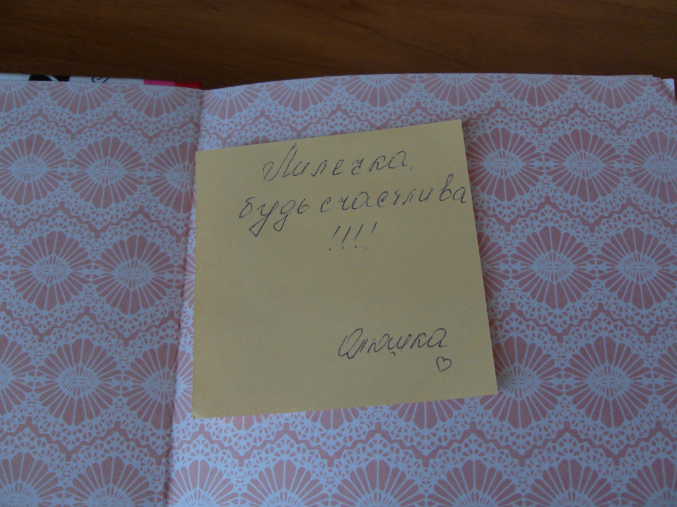 Лилечка,
будь счастлива
!!!!
Олюшка